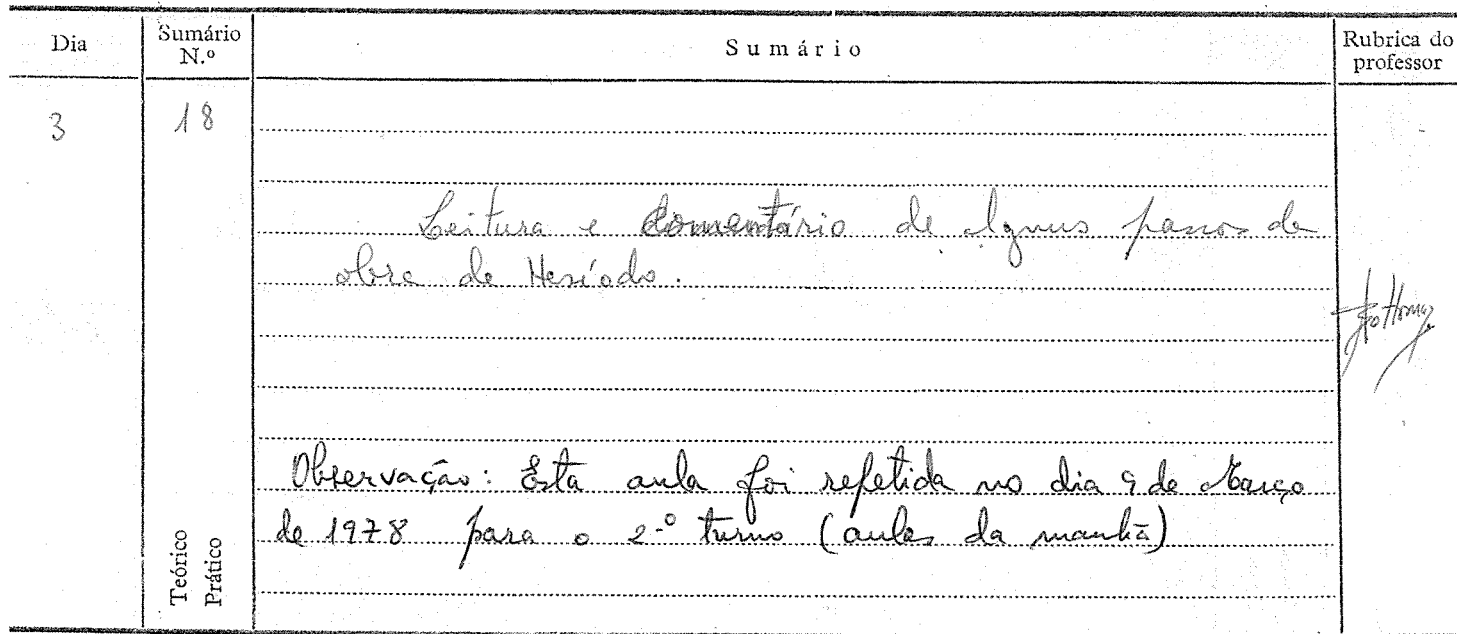 Dia
Sumário
N.º
Sumário
Rubrica do
professor
3
18
Leitura e Comentário de alguns passos da
obra de Hesíodo.
Observação: Esta aula foi repetida no dia 9 de Março
de 1978 para o 2.º turno (aulas da manhã)
Teórico
Prático